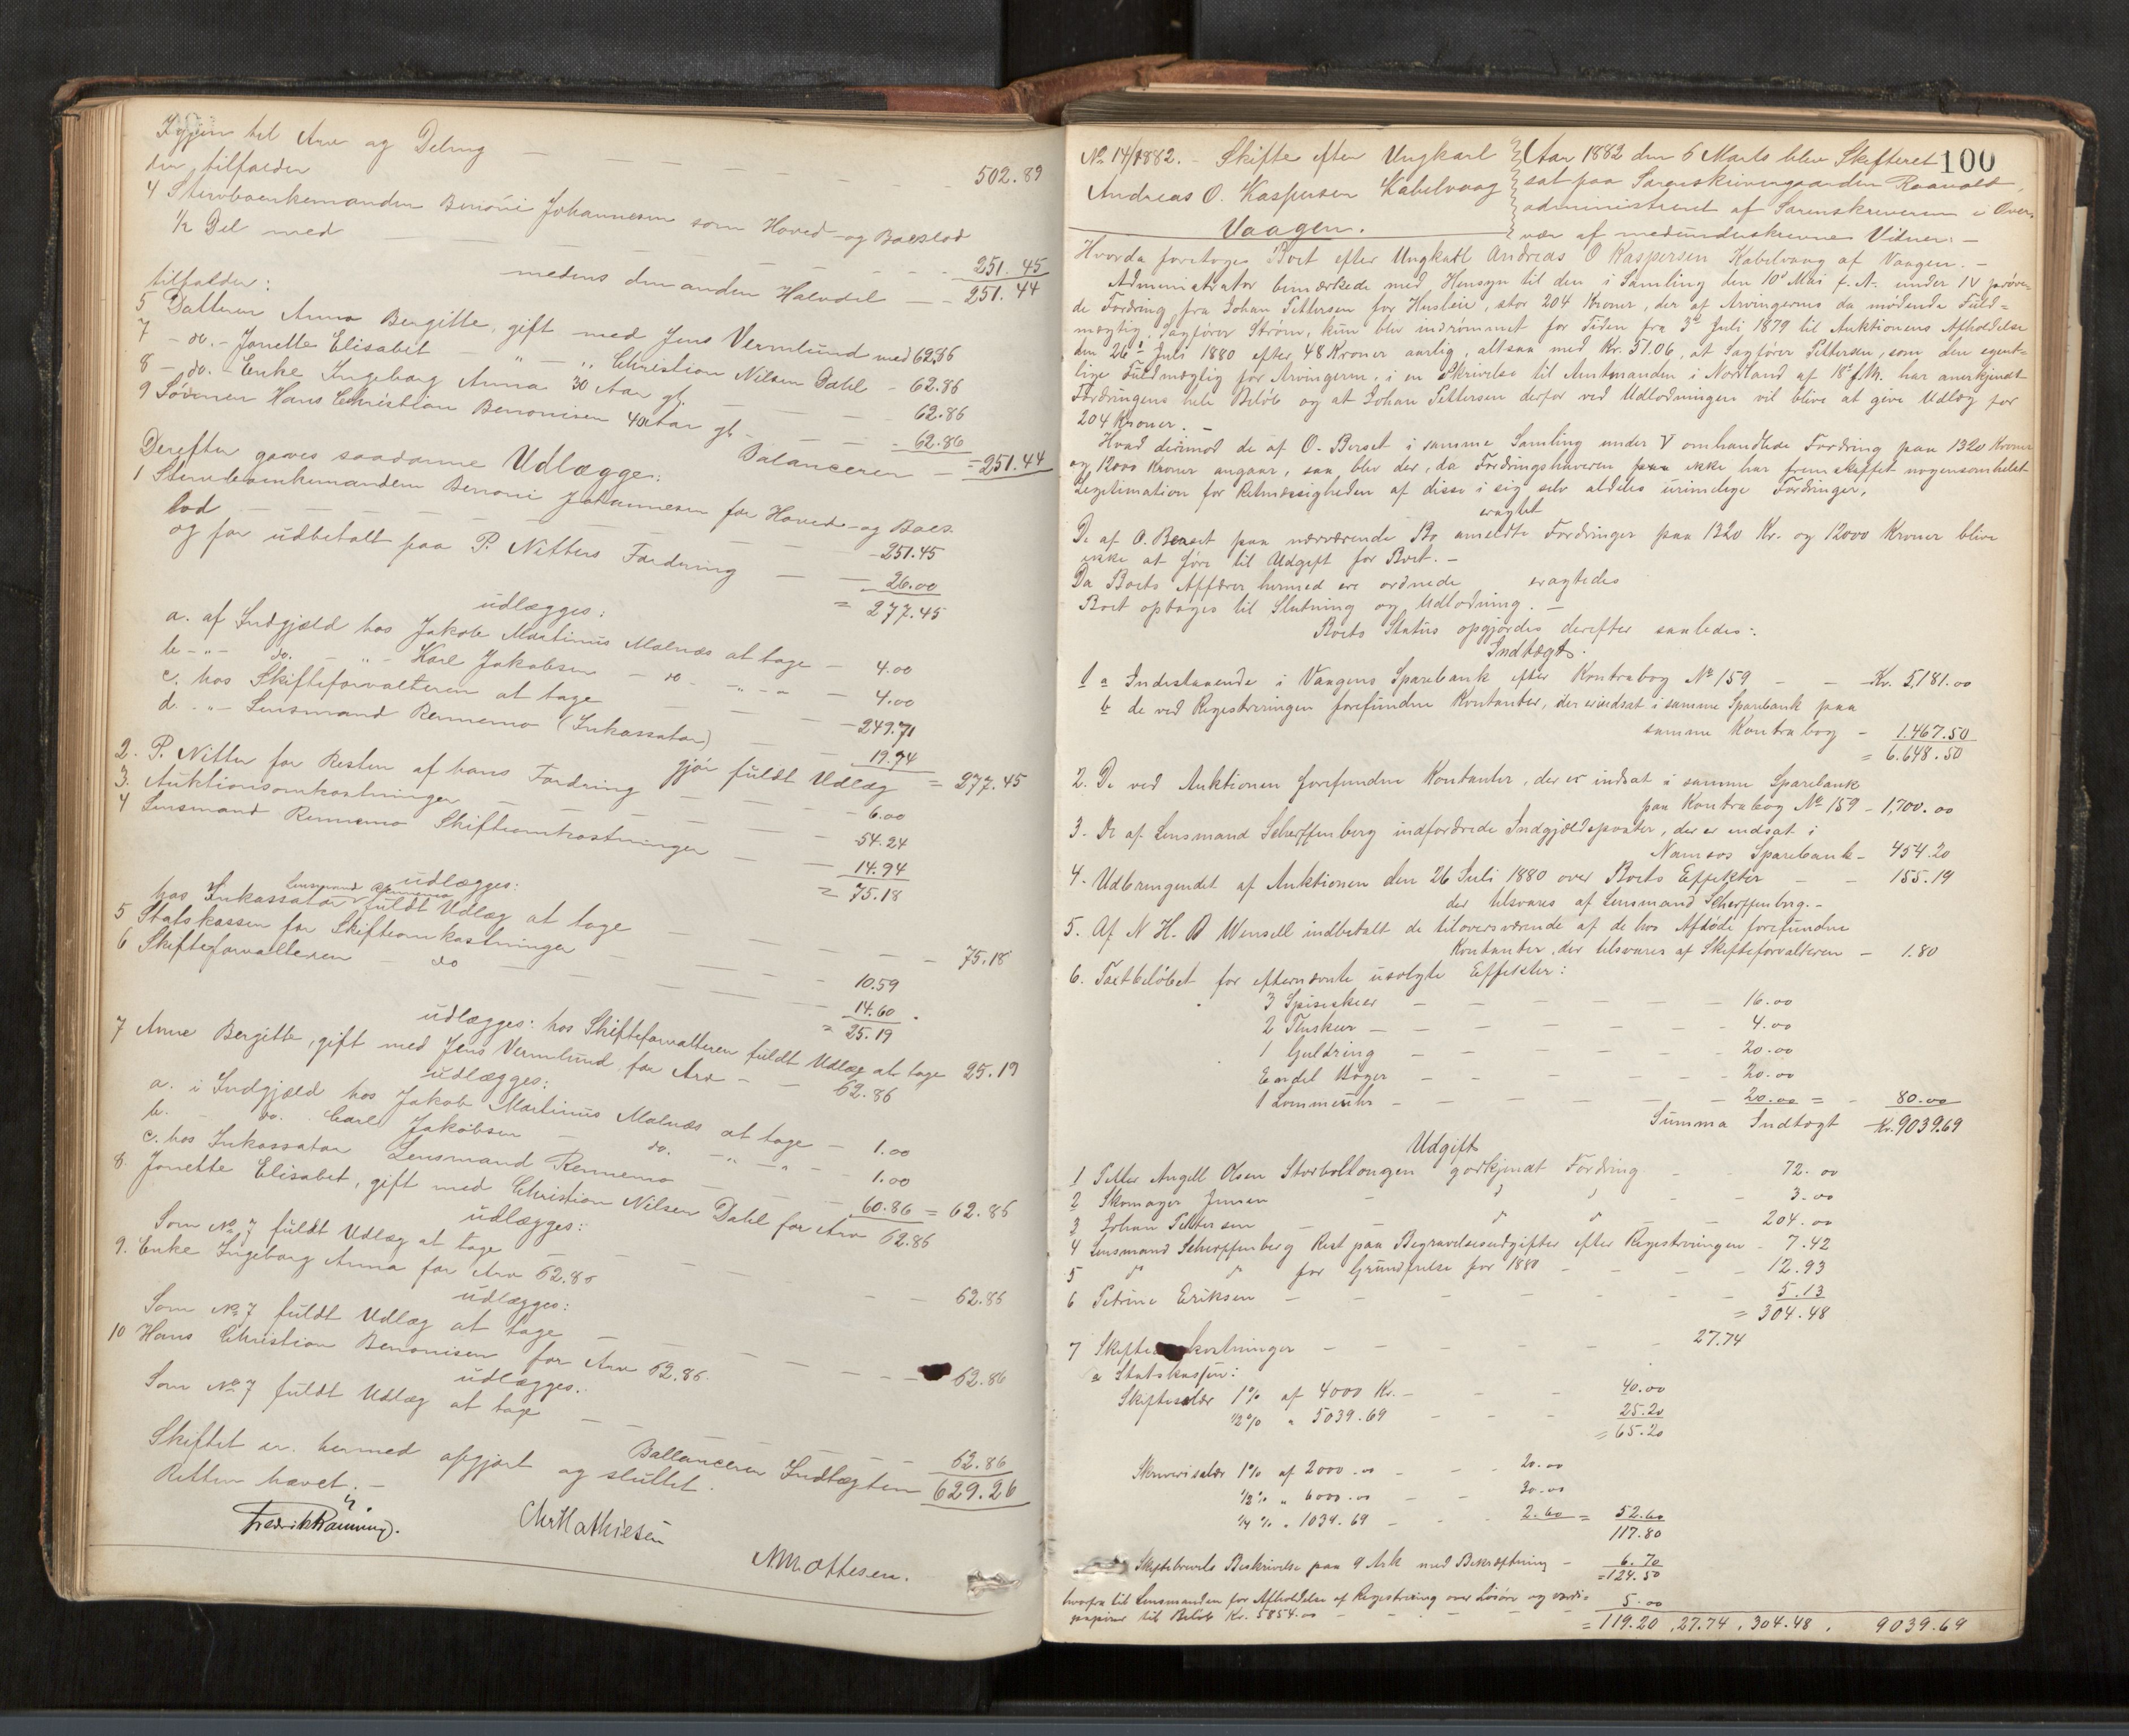 Igjen til Arv og Deling — — — 502.89
der tilfalder
4 Stervboenkemanden Benoni Johannesen som Hoved- og Boeslod
½ Del med — — — 251.45
medens den anden Halvdel — 251.44
tilfalder:
5 Datteren Anna Bergitte, gift med Jens Vermlund med 62.86
7 - do. - Jonette Elisabet — " — " Christian Nilsen Dahl - 62.86
8 - do. Enke Ingeborg Anna 30 Aar gl. — 62.86
9 Sönnen Hans Christian Benonisen 40 Aar gl. — 62.86
Balancerer — = 251.44
Derefter gaves saadanne Udlægge:
1 Stervboenkemanden Benoni Johannesen for Hoved- og Boes-
lod — — — 251.45
og for udbetalt paa P. Nitters Fordring — 26.00
= 277.45
udlægges:
a. af Indgjæld hos Jakob Martinus Malnæs at tage — 4.00
b - " - do. - " - Karl Jakobsen - do - " - " — 4.00
c. hos Skifteforvalteren at tage — 249.71
d. - " - Lensmand Rennemo (Inkassator) — 19.74
gjör fuldt Udlæg = 277.45
2. P. Nitter for Resten af hans Fordring — 6.00
3. Auktionsomkostninger — 54.24
4 Lensmand Rennemo Skifteomkostninger — 14.94
= 75.18
udlægges:
hos Inkassator Lensmand Rennemo fuldt Udlæg at tage — 75.18
5 Statskassen for Skifteomkostninger — 10.59
6 Skifteforvalteren — do — 14.60
= 25.19
udlægges: hos Skifteforvalteren fuldt Udlæg at tage 25.19
7 Anne Bergitte, gift med Jens Vermlund for Arv — 62.86
udlægges:
a. i Indgjæld hos Jakob Martinus Malnæs at tage — 1.00
b. - do. Carl Jakobsen — do. - " - " — 1.00
c. hos Inkassator Lensmand Rennemo — 60.86 = 62.86
8. Jonette Elisabet, gift med Christian Nilsen Dahl for Arv 62.86
udlægges:
Som No 7 fuldt Udlæg at tage — 62.86
9. Enke Ingeborg Anna for Arv 62.86
udlægges:
Som No 7 fuldt Udlæg at tage — 62.86
10 Hans Christian Benonisen for Arv 62.86.
udlægges:
Som No 7 fuldt Udlæg at tage — 62.86
Ballancerer Indtægten 629.26
Skiftet er hermed opgjort og sluttet.
Retten hævet. —
Chr Mathiesen
N M Ottesen.
100
No 14/1882. - Skifte efter Ungkarl
Andreas O. Kaspersen Kabelvaag
Vaagen.
Aar 1882 den 6 Marts blev Skifteret
sat paa Sorenskrivergaarden
administreret af Sorenskriveren i Over-
vær af medunderskrevne Vidner. —
Hvorda foretoges Boet efter Ungkarl Andreas O Kaspersen Kabelvaag af Vaagen. —
Administrator bemærkede med Hensyn til den i Samling den 10de Mai f. A. under IV prøve-
de Fordring fra Johan Pettersen for Husleie, stor 204 Kroner, der af Arvingernes da mødende Fuld-
mægtig, Sagfører Strøm, kun blev indrømmet for Tiden fra 3de Juli 1879 til Auktionens Afholdelse
den 26de Juli 1880 efter 48 Kroner aarlig, altsaa med Kr. 51.06, at Sagfører Pettersen, som den egent-
lige Fuldmægtig for Arvingerne, i en Skrivelse til Amtmanden i Nordland af 18de f. M. har anerkjendt
Fordringens hele Beløb og at Johan Pettersen derfor ved Udlodningen vil blive at give Udlæg for
204 Kroner. —
Hvad derimod de af O. Berset i samme Samling under V omhandlede Fordring paa 1320 Kroner
og 12000 Kroner angaar, saa blev der, da Fordringshaveren ikke har fremskaffet nogensomhelst
Legitimation for Retmæssigheden af disse i sig selv aldeles urimelige Fordringer,
eragtet
De af O. Berset paa nærværende Bo anmeldte Fordringer paa 1320 Kr. og 12000 Kroner blive
ikke at føre til Udgift for Boet. —
Da Boets Affærer hermed ere ordnede eragtedes
Boet optages til Slutning og Udlodning. —
Boets Status opgjordes derefter saaledes:
Indtægt.
1 a Indestaaende i Vaagens Sparebank efter Kontrabog No 159 — Kr. 5,181.00
b de ved Registreringen forefundne Kontanter, der er indsat i samme Sparebank paa
samme Kontrabog — 1.467.50
= 6.648.50
2. De ved Auktionen forefundne Kontanter, der er indsat i samme Sparebank
paa Kontrabog No 159 - 1,700.00
3. De af Lensmand Scherffenberg indfordrede Indgjældsposter, der er indsat i
Namsos Sparebank — 454.20
4. Udbringendet af Auktionen den 26 Juli 1880 over Boets Effekter — 155.19
der tilsvares af Lensmand Scherffenberg. -
5. Af N H. A Wensell indbetalt de tiloversværende af de hos Afdøde forefundne
Kontanter, der tilsvares af Skifteforvalteren — 1.80
6. Taxtbeløbet for efternævnte usolgte Effekter:
3 Spiseskeer — 16.00
2 Theskeer — 4.00
1 Guldring — 20.00
Endel Bøger — 20.00
1 Lommeuhr — 20.00 = 80.00
Summa Indtægt Kr. 9039.69
Udgift
1 Petter Angell Olsen Storvollongen godkjendt Fordring — 72.00
2 Skomager Jensen — 3.00
3 Johan Pettersen — 204.00
4 Lensmand Scherffenberg Rest paa Begravelsesudgifter efter Registreringen - 7.42
5 do do for Grundfrelse for 1880 — 12.93
6 Petrine Eriksen — 5.13
= 304.48
7 Skifte kostninger — 27.74
a Statskassen:
Skiftesalær 1% af 4000 Kr. - 40.00
½% " 5039.69 — 25.20
= 65.20
Skriversalær 1% af 2000.00 — 20.00
½% " 6000.00 — 30.00
¼% " 1034.69 — 2.60 = 52.60
117.80
Skiftebrevets Beskrivelse paa 9 Ark med Bekræftning — 6.70
= 124.50
hvorfra til Lensmanden for Afholdelse af Registrering over Løsøre og værdi-
papirer til Beløb Kr. 5854.00 — 5.00
= 119.20 , 27.74 , 304.48 , 9039.69